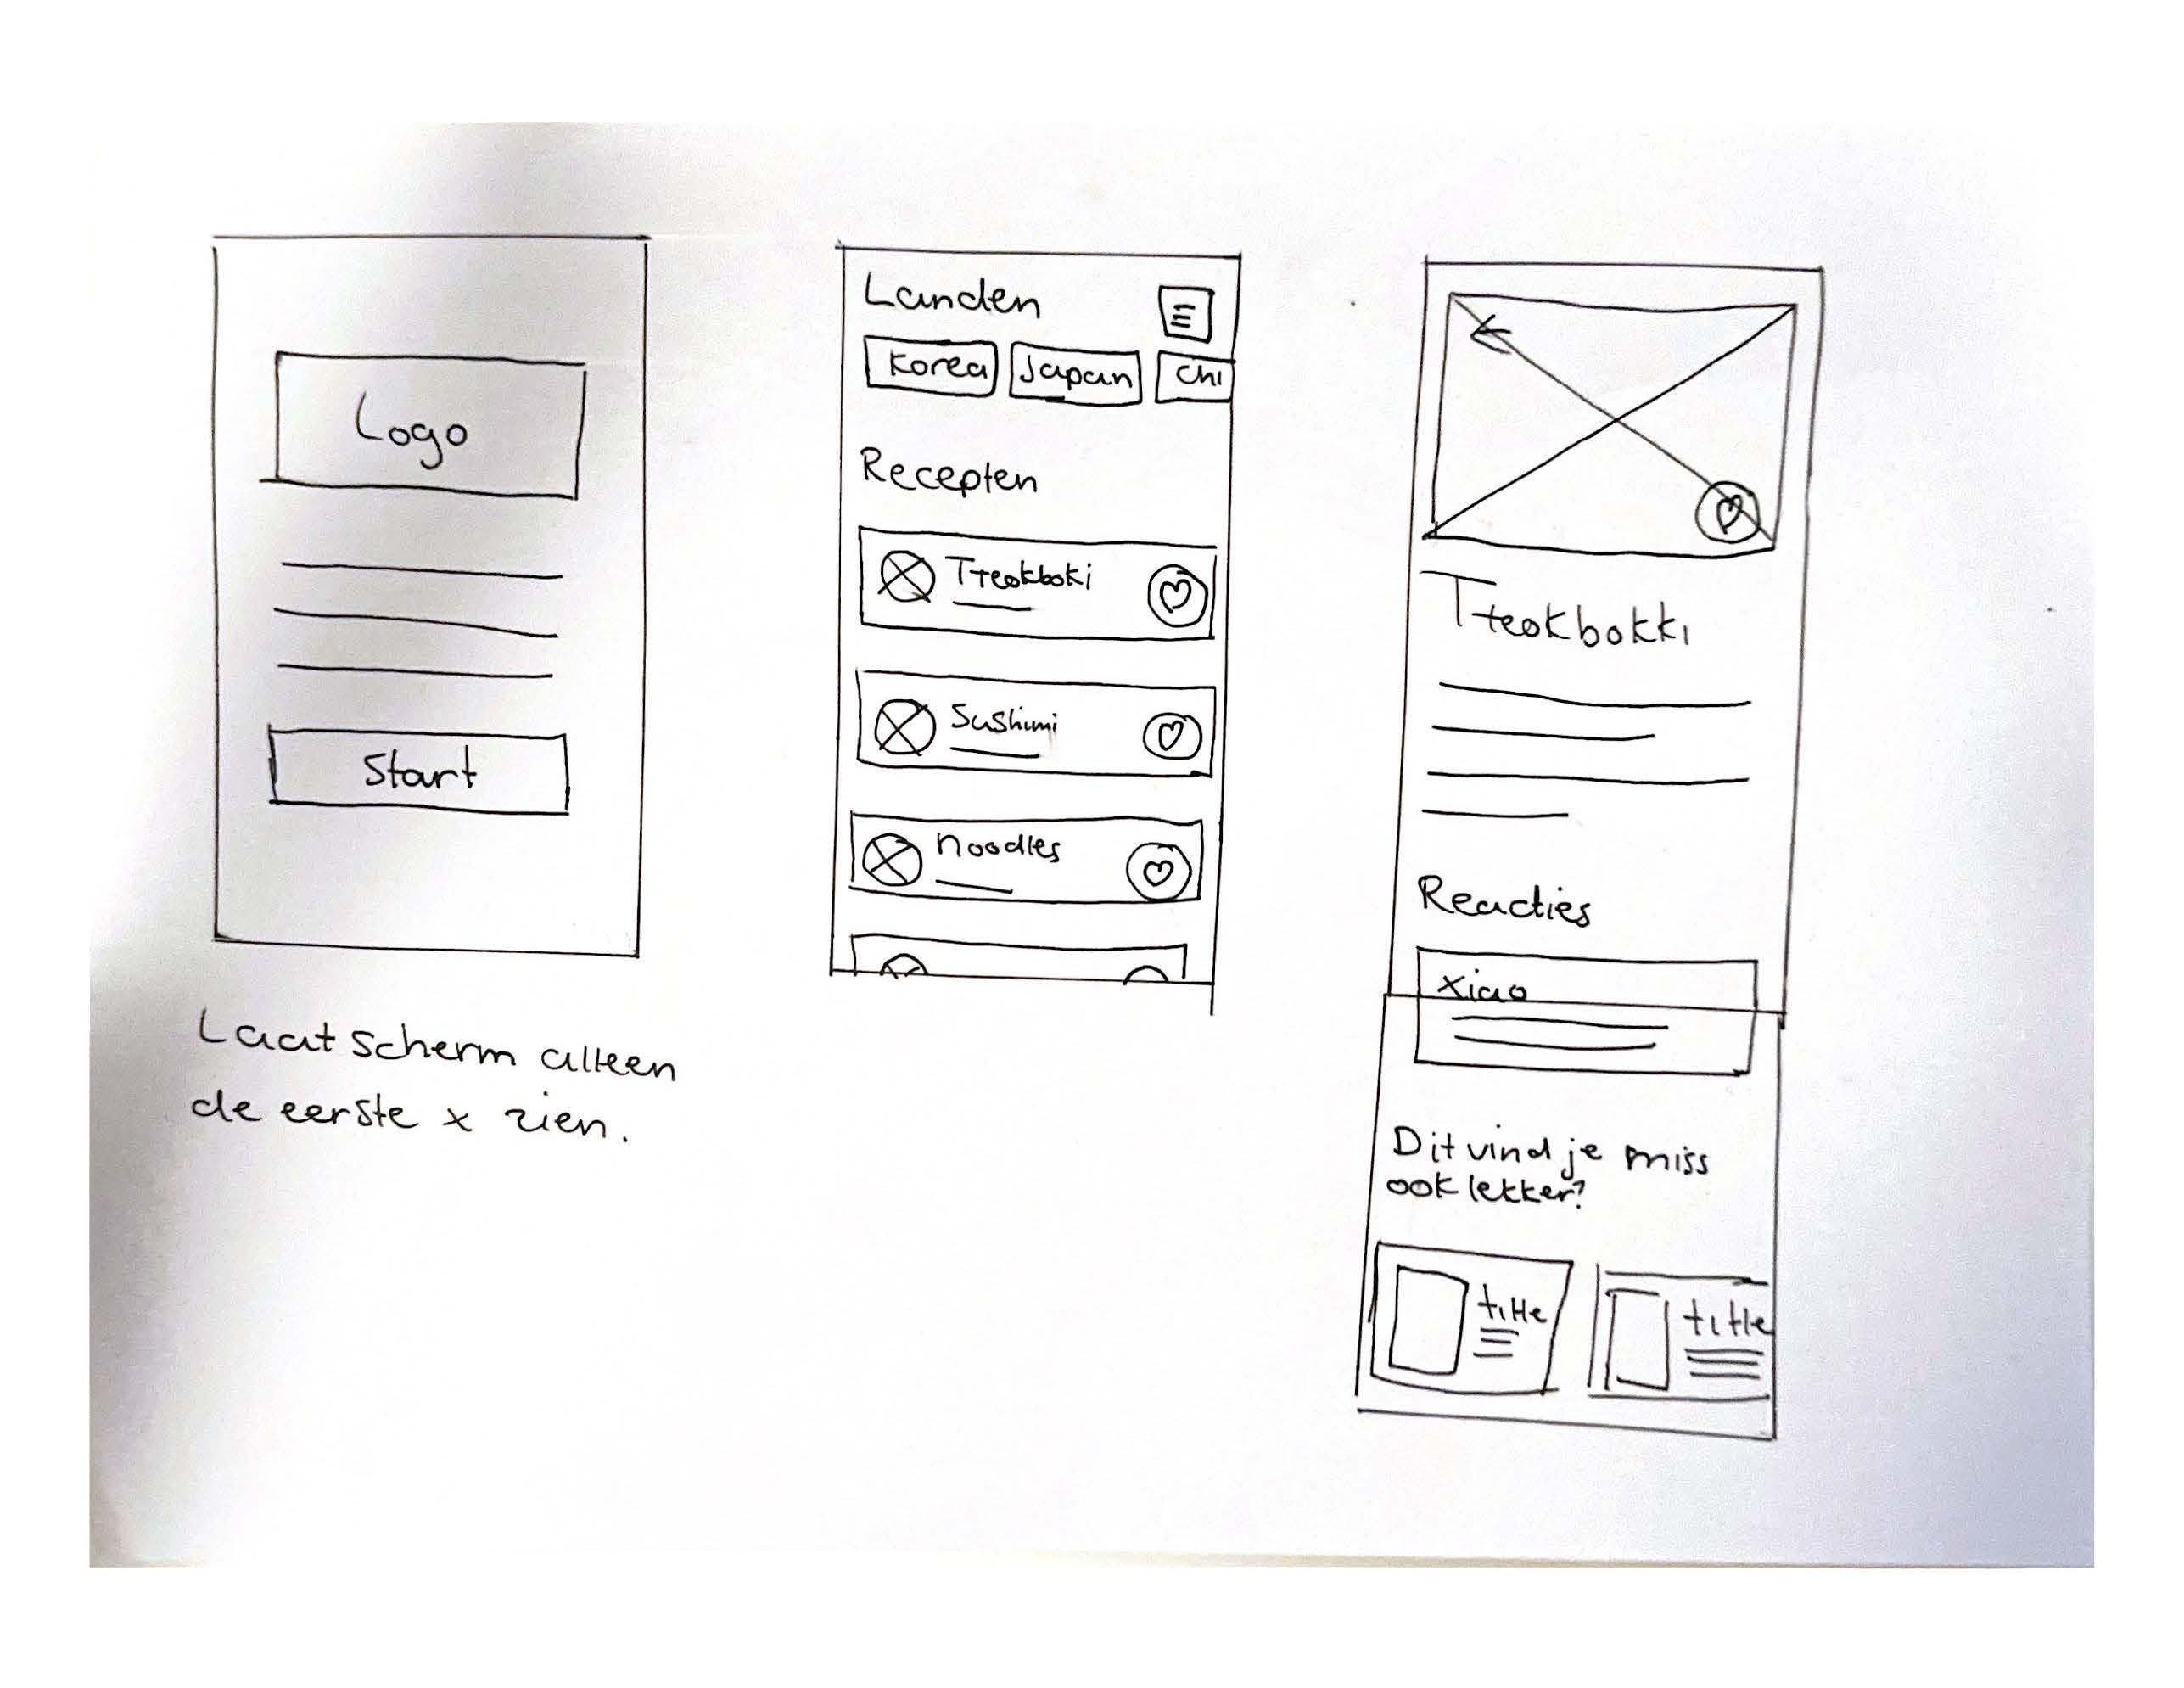 Logo
Start
Laat scherm alleen
de eerste x zien.
Landen
Korea Japan Chi
Recepten
Tteokboki
Sushimi
noodles
Tteokbokki
Reacties
Xiao
Dit vind je miss
ook lekker?
title title